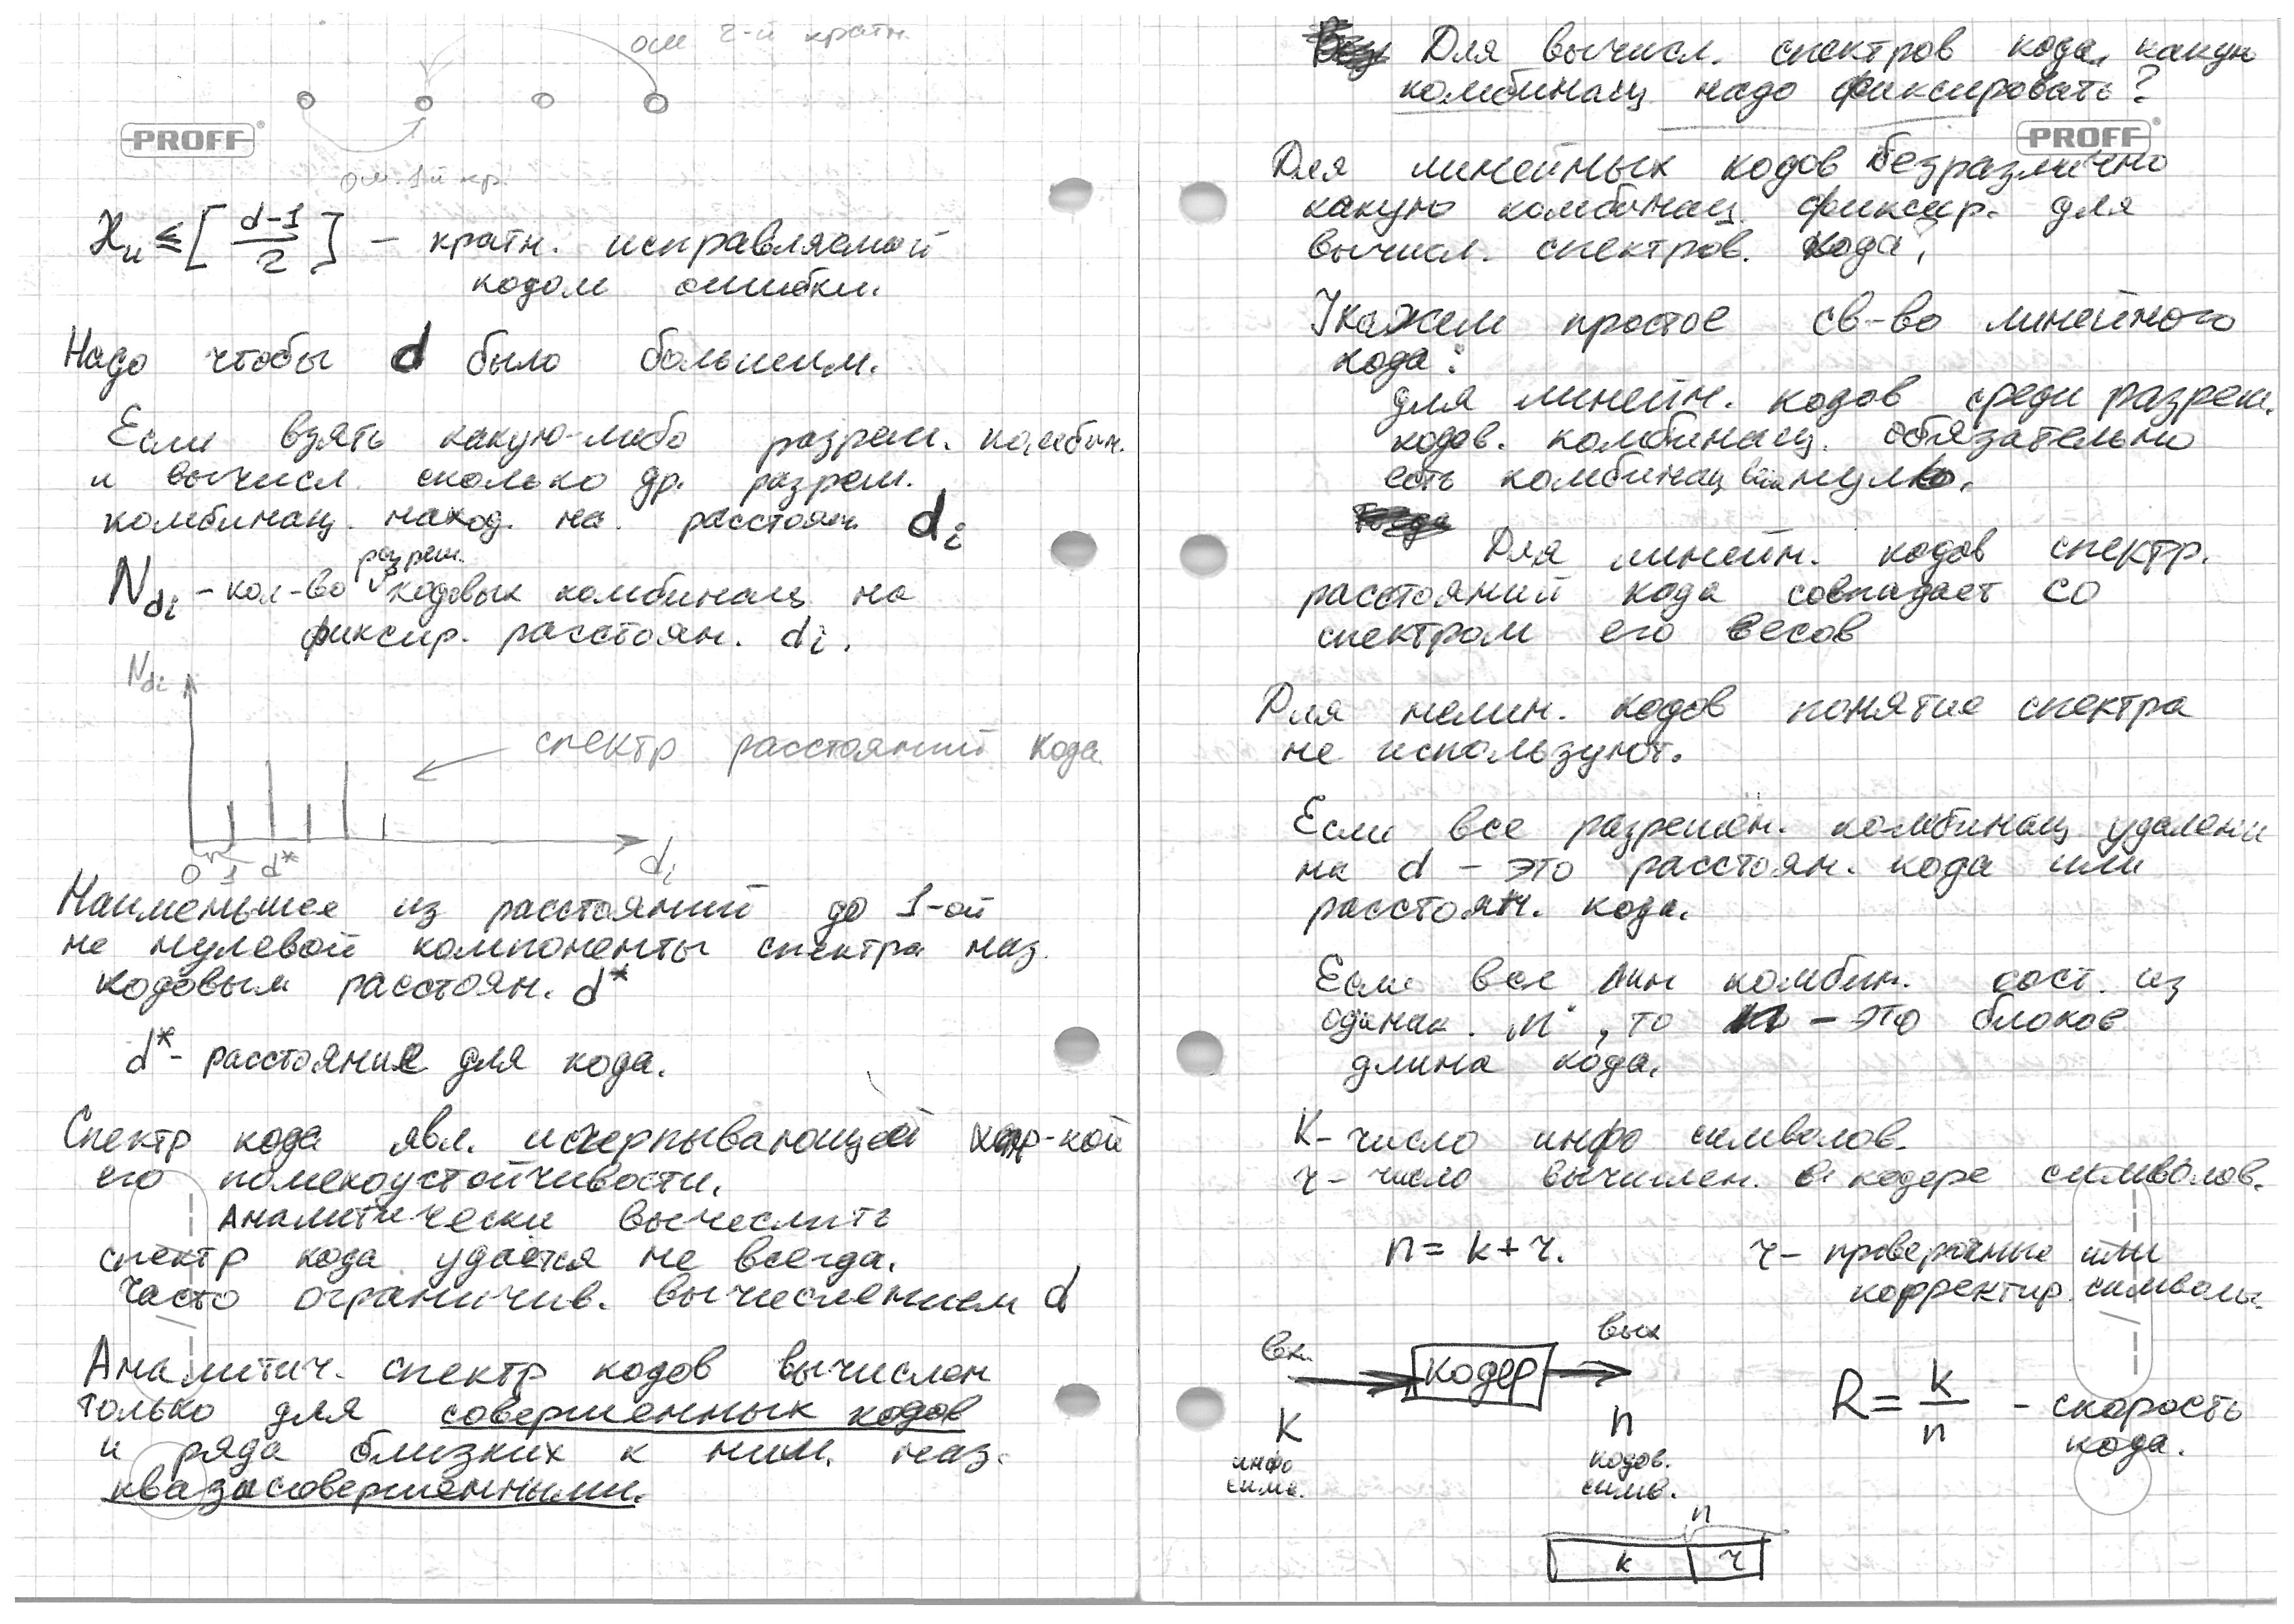 ош 2-й кратн.
PROFF
ош. 1й кр.
χи ≤ [ (d-1)/2 ] – кратн. исправляемой
кодом ошибки.
Надо чтобы d было большим.
Если взять какую-либо разреш. комбин.
и вычисл. сколько др. разреш.
комбинац. наход. на расстоян. di
разреш.
Ndi – кол-во кодовых комбинац на
фиксир. расстоян. di.
Ndi
спектр расстояний кода
0 1 d* di
Наименьшее из расстояний до 1-ой
не нулевой компоненты спектра наз.
кодовым расстоян. d*
d* - расстояние для кода.
Спектр кода явл. исчерпывающей хар-кой
его помехоустойчивости.
Аналитически вычеслить
спектр кода удаётся не всегда.
Часто ограничив. вычеслением d
Аналитич. спектр кодов вычислен
только для совершенных кодов
и ряда близких к ним, наз.
квазисовершенными.
Для вычисл. спектров кода, какую
комбинац надо фиксировать?
PROFF
Для линейных кодов безразлично
какую комбинац. фиксир. для
вычисл. спектров. кода.
Укажем простое св-во линейного
кода:
для линейн. кодов среди разреш.
кодов. комбинац. обязательно
есть комбинац нулю.
Для линейн. кодов спектр.
расстояний кода совпадает со
спектром его весов
Для нелин. кодов понятие спектра
не используют.
Если все разрешён. комбинац удалены
на d – это расстоян. кода или
расстоян. кода.
Если все комбин. сост. из
одинак. "n", то n – это блоков
длина кода.
K – число инфо символов.
r – число вычислен. в кодере символов.
n = k + r. r – проверочные или
корректир. символы.
вх. кодер вых
K n
инфо симв. кодов. симв.
R = k/n – скорость
кода.
n
k r